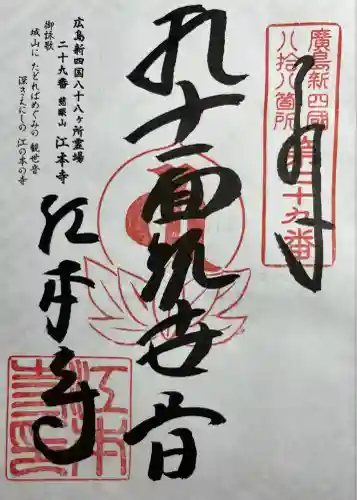 廣島新四國
八拾八箇所
第二十九番
奉拝
十一面観世音
広島新四国八十八ヶ所霊場
二十九番 慈眼山 江本寺
御詠歌
城山に たどればめぐみの 観世音
深きえにしの 江の本の寺
江本寺